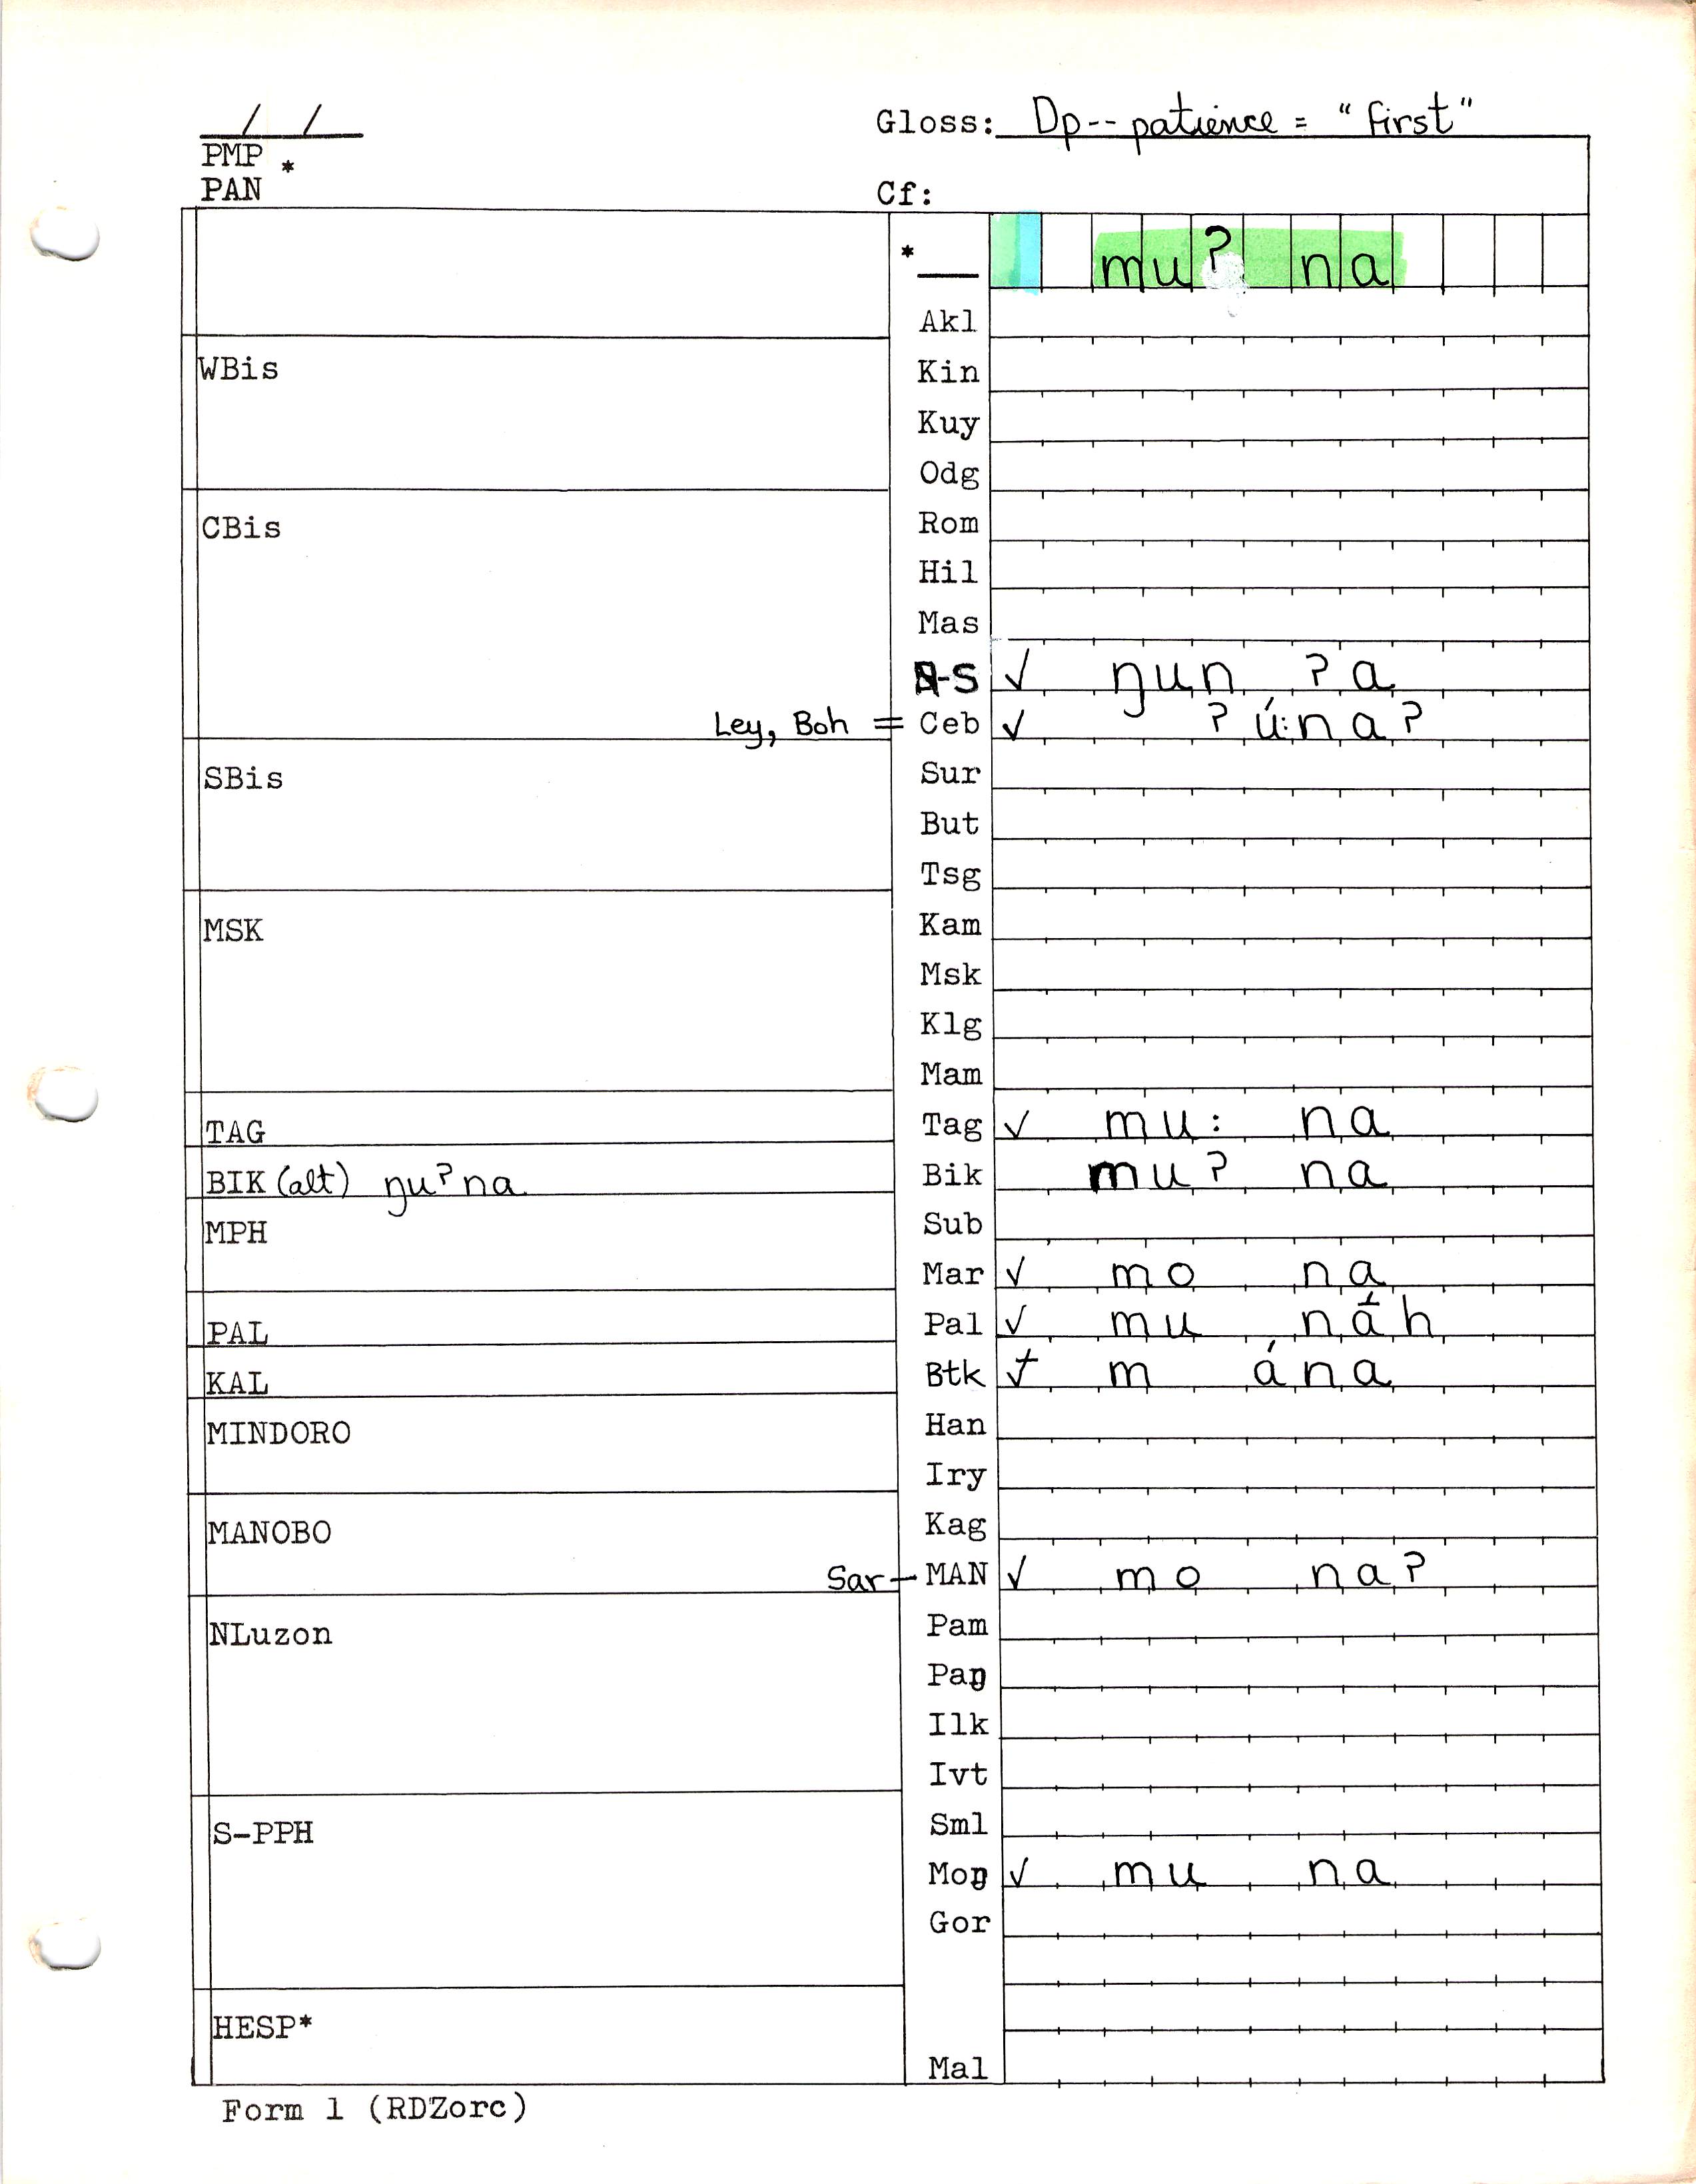 / /
Gloss: Dp -- patience = "first"
PMP *
PAN
Cf:
* mu ʔ na
Akl
WBis
Kin
Kuy
Odg
CBis
Rom
Hil
Mas
N-S ✓ ŋun ʔa
Ley, Boh = Ceb ✓ ʔú:naʔ
SBis
Sur
But
Tsg
MSK
Kam
Msk
Klg
Mam
TAG
Tag ✓ mu: na
BIK (alt) ŋuʔna
Bik muʔ na
MPH
Sub
Mar ✓ mo na
PAL
Pal ✓ mu náh
KAL
Btk ✓ m ána
MINDORO
Han
Iry
MANOBO
Kag
Sar – MAN ✓ mo naʔ
NLuzon
Pam
Paŋ
Ilk
Ivt
S-PPH
Sml
Moŋ ✓ mu na
Gor
HESP*
Mal
Form 1 (RDZorc)